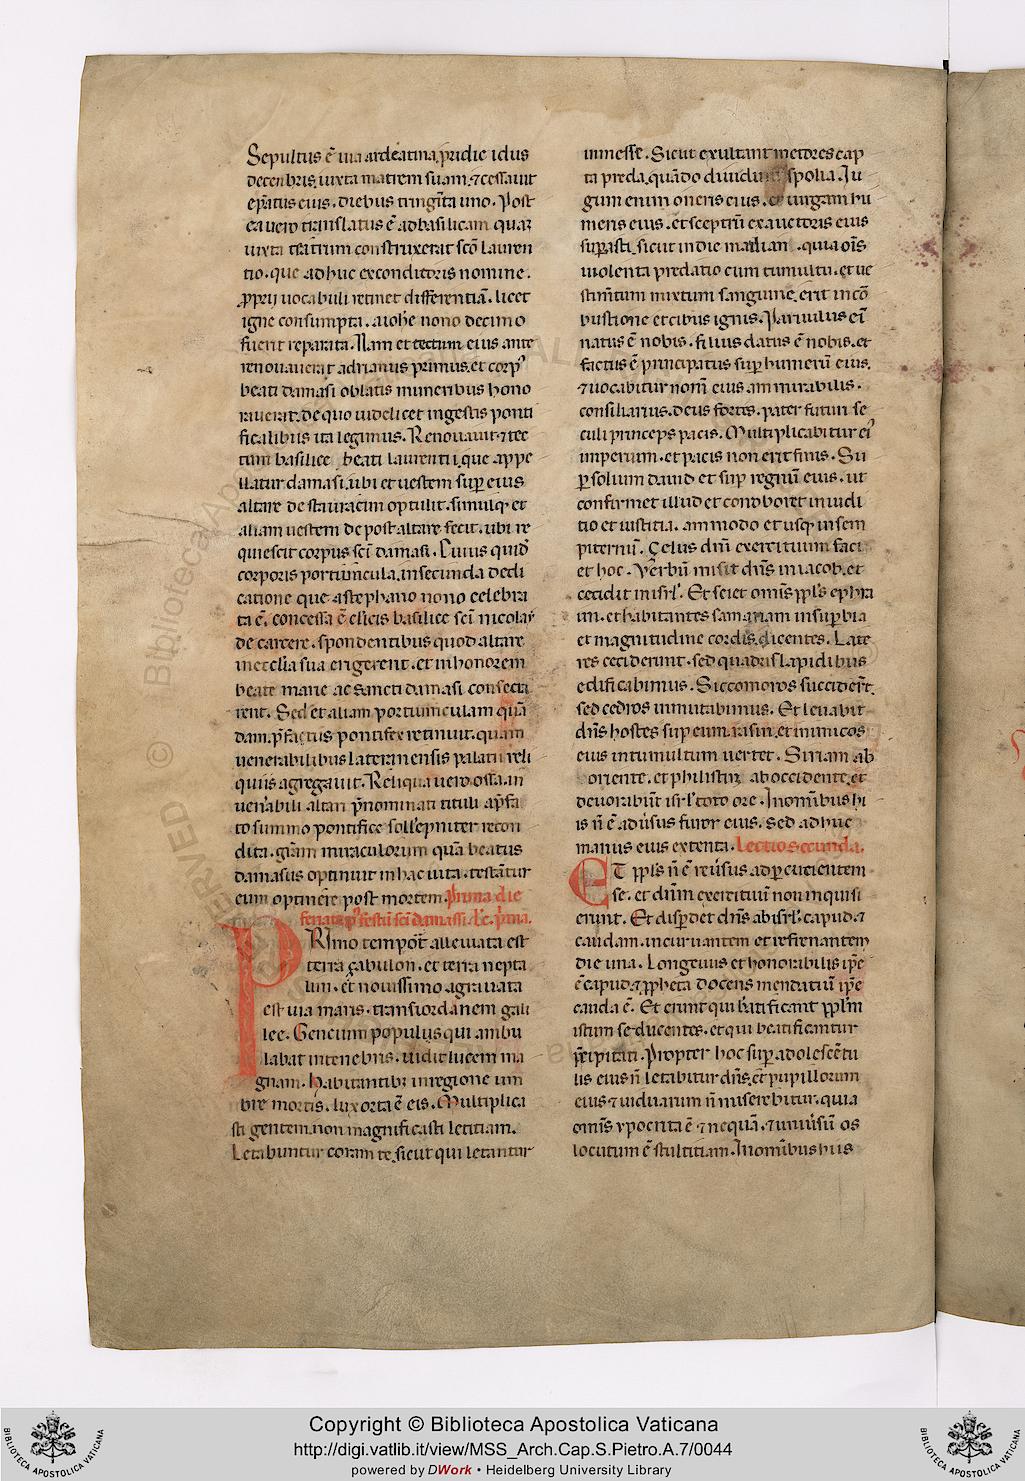 Sepultus ē uia ardeatina. pridie idus
decenbris. iuxta matrem suam. ⁊ cessauit
ep̄atus eius. diebus tringīta uno. Post
ea uero translatus ē ad basilicam quaꝫ
iuxta teatrum construxerat sc̄o lauren
tio. que adhuc ex conditoris nomine.
ꝓprij uocabuli retinet differentiā. licet
igne consumpta. a iohe nono decimo
fuerit reparata. Nam et tectum eius ante
renouauerat adrianus primus. et corpꝰ
beati damasi oblatis muneribus hono
rauerat. de quo uidelicet in gestis ponti
ficalibus ita legimus. Renouauit ⁊ tec
tum basilice beati laurentii. que appe
llatur damasi. ubi et uestem suꝑ eius
altare de stauracim optulit. simulqꝫ et
aliam uestem de post altare fecit. ubi re
quiescit corpus sc̄i damasi. Cuius quid̄
corporis portiuncula. in secunda dedi
catione que a stephano nono celebra
ta ē. concessa ē cl̄icis basilice sc̄i nicolay
de carcere. spondentibus quod altare
in ecclīa sua erigerent. et in honorem
beate marie ac sancti damasi consecra
rent. Sed et aliam portiunculam quā
dam. p̄factus pontifex retinuit. quam
uenerabilibus lateranensis palatii reli
quiis agregauit. Reliqua uero ossa. in
uen̄abili altari p̄nominati tituli ap̄fa
to summo pontifice sollepniter recon
dita. Nam miraculorum quā beatus
damasus optinuit in hac uita. testātur
eum optinere post mortem. Prima die
feria post festū sc̄i damassi. Lc̄. p̄ma.
PRImo tempore alleuiata est
terra çabulon. et terra nepta
lim. et nouissimo agrauata
est uia maris. trans iordanem gali
lee. Gencium populus qui ambu
labat in tenebris. uidit lucem ma
gnam. habitantibꝫ in regione um
bre mortis. lux orta ē eis. Multiplica
sti gentem. non magnificasti letitiam.
Letabuntur coram te. sicut qui letantur
in messe. Sicut exultant uictores cap
ta preda. quādo diuidunt spolia. Iu
gum enim oneris eius. et uirgam hu
meris eius. et sceptrū exauctoris eius
suꝑasti. sicut in die madian. quia oīs
uiolenta predatio cum tumultu. et ue
stimētum mixtum sanguine. erit in cō
bustione et cibus ignis. Paruulus eī
natus ē nobis. filius datus ē nobis. et
factus ē principatus suꝑ humerū eius.
⁊ uocabitur nomē eius ammirabilis.
consiliarius. deus fortis. pater futuri se
culi princeps pacis. Multiplicabitur eiꝰ
imperium. et pacis non erit finis. Su
ꝑ solium dauid et suꝑ regnū eius. ut
confirmet illud et condboret in iudi
tio et iustitia. ammodo et usqꝫ in sem
piternū. Çelus dn̄i exercituum faci
et hoc. Verbū misit dn̄s in iacob. et
cecidit in isrl̄. Et sciet omīs ppl̄s ephra
im. et habitantes samariam in suꝑbia
et magnitudine cordis. dicentes. Late
res ceciderunt. sed quadris lapidibus
edificabimus. Siccomoros succider̄t.
sed cedros inmutabimus. Et leuabit
dn̄s hostes suꝑ eum rasin. et inimicos
eius in tumultum uertet. Siriam ab
oriente. et philistiꝫ ab occidente. et
deuorabūt isrl̄ toto ore. In om̄ibus hi
is n̄ ē aduersus furor eius. sed adhuc
manus eius extenta. Lectio secunda.
ET ppl̄s n̄ ē reuersus ad ꝑcucientem
se. et dn̄m exercituū non inquisi
erunt. Et disꝑdet dn̄s ab isrl̄. capud ⁊
caudam. incuruantem et refrenantem
die una. Longeuus et honorabilis ip̄e
ē capud. ⁊ ꝓpheta docens mendatiū ip̄e
cauda ē. Et erunt qui b̄atificant ppl̄m
istum seducentes. et qui beatificantur
p̄cipitati. Propter hoc suꝑ adolescētu
lis eius n̄ letabitur dn̄s. et pupillorum
eius ⁊ uiduarum n̄ miserebitur. quia
omīs ypocrita ē ⁊ nequā. ⁊ uniuersū os
locutum ē stultitiam. In om̄ibus hiis
Copyright © Biblioteca Apostolica Vaticana
http://digi.vatlib.it/view/MSS_Arch.Cap.S.Pietro.A.7/0044
powered by DWork • Heidelberg University Library
BIBLIOTECA APOSTOLICA VATICANA
BIBLIOTECA APOSTOLICA VATICANA